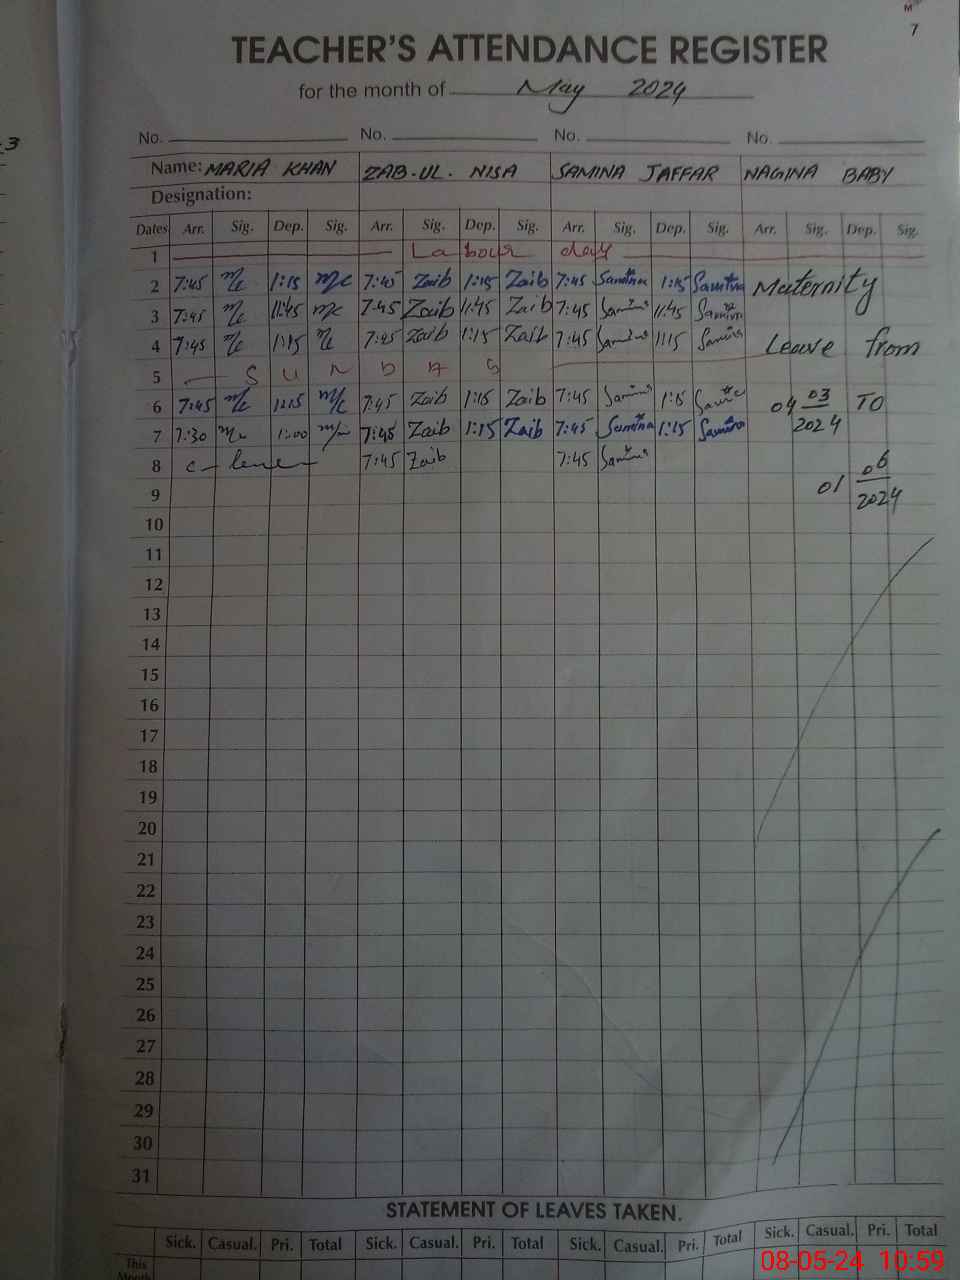 M
7
3
TEACHER'S ATTENDANCE REGISTER
for the month of May 2024
No. No. No. No.
Name: MARIA KHAN ZAB-UL. NISA SAMINA JAFFAR NAGINA BABY
Designation:
Dates Arr. Sig. Dep. Sig. Arr. Sig. Dep. Sig. Arr. Sig. Dep. Sig. Arr. Sig. Dep. Sig.
1 Labour day
2 7:45 1:15 7:45 Zaib 1:15 Zaib 7:45 Samina 1:15 Samina Maternity
3 7:45 11:45 7:45 Zaib 11:45 Zaib 7:45 Samina 11:45 Samina
4 7:45 1:15 7:45 Zaib 1:15 Zaib 7:45 Samina 1:15 Samina Leave from
5 SUNDAY
6 7:45 1:15 7:45 Zaib 1:15 Zaib 7:45 Samina 1:15 Samina 04 03 2024 TO
7 7:30 1:00 7:45 Zaib 1:15 Zaib 7:45 Samina 1:15 Samina
8 c-leave 7:45 Zaib 7:45 Samina
9 01 06 2024
10
11
12
13
14
15
16
17
18
19
20
21
22
23
24
25
26
27
28
29
30
31
STATEMENT OF LEAVES TAKEN.
Sick. Casual. Pri. Total Sick. Casual. Pri. Total Sick. Casual. Pri. Total Sick. Casual. Pri. Total
This
Month
08-05-24 10:59